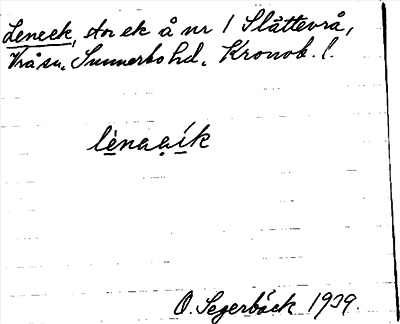 Leneek, stor ek å nr 1 Slättevrå,
Vrå sn. Sunnerbo hd. Kronob. l.
lènaaík
O. Segerbäck 1939.